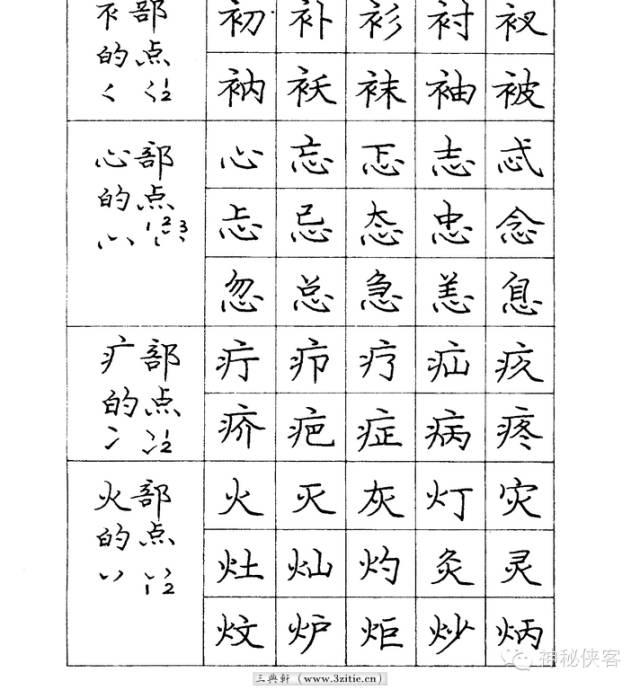 衤部 初 补 衫 衬 衩
的点 衲 袄 袜 袖 被
1 2
心部 心 忘 忑 志 忒
的点 忐 忌 态 忠 念
1 2 3
忽 总 急 恙 息
疒部 疔 疖 疗 疝
的点 疥 疤 症 病 疼
1 2
火部 火 灭 灰 灯 灾
的点 灶 灿 灼 灸 灵
1 2
炆 炉 炬 炒 炳
神秘侠客
三典軒 (www.3zitie.cn)